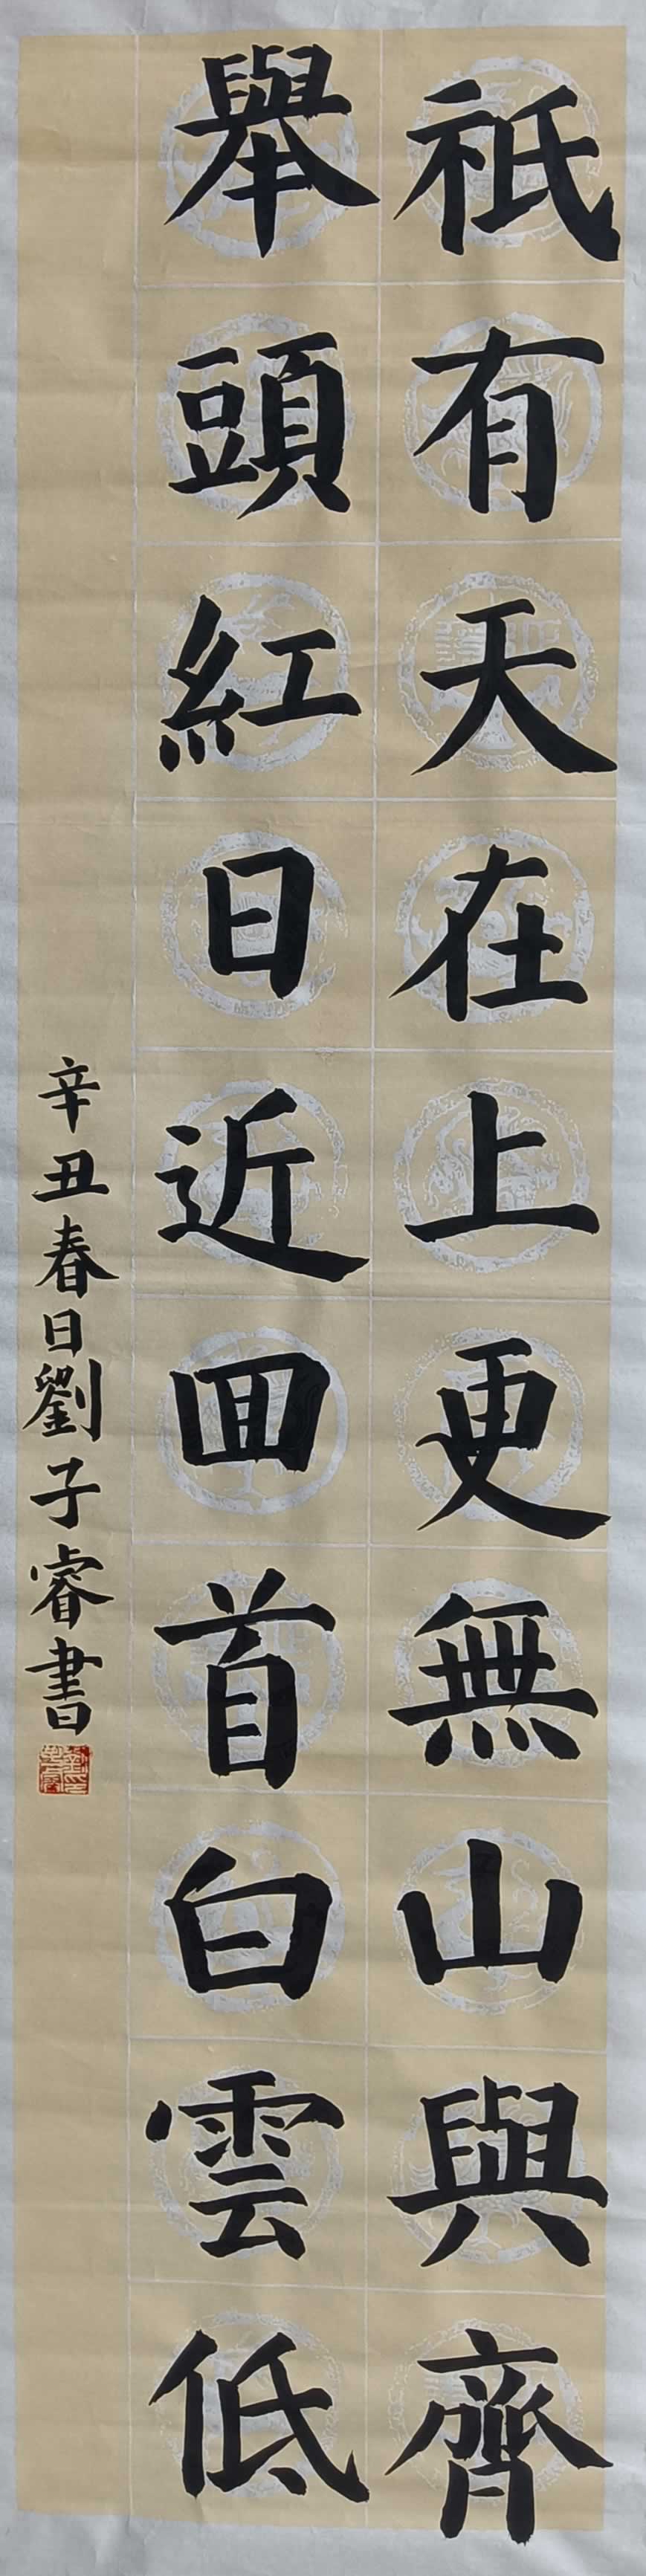 祇有天在上更無山與齊
舉頭紅日近回首白雲低
辛丑春日劉子睿書